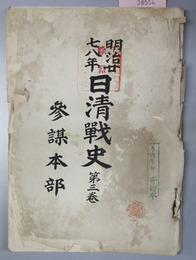 28554
明治廿
七八年
日清戰史
第三卷
參謀本部